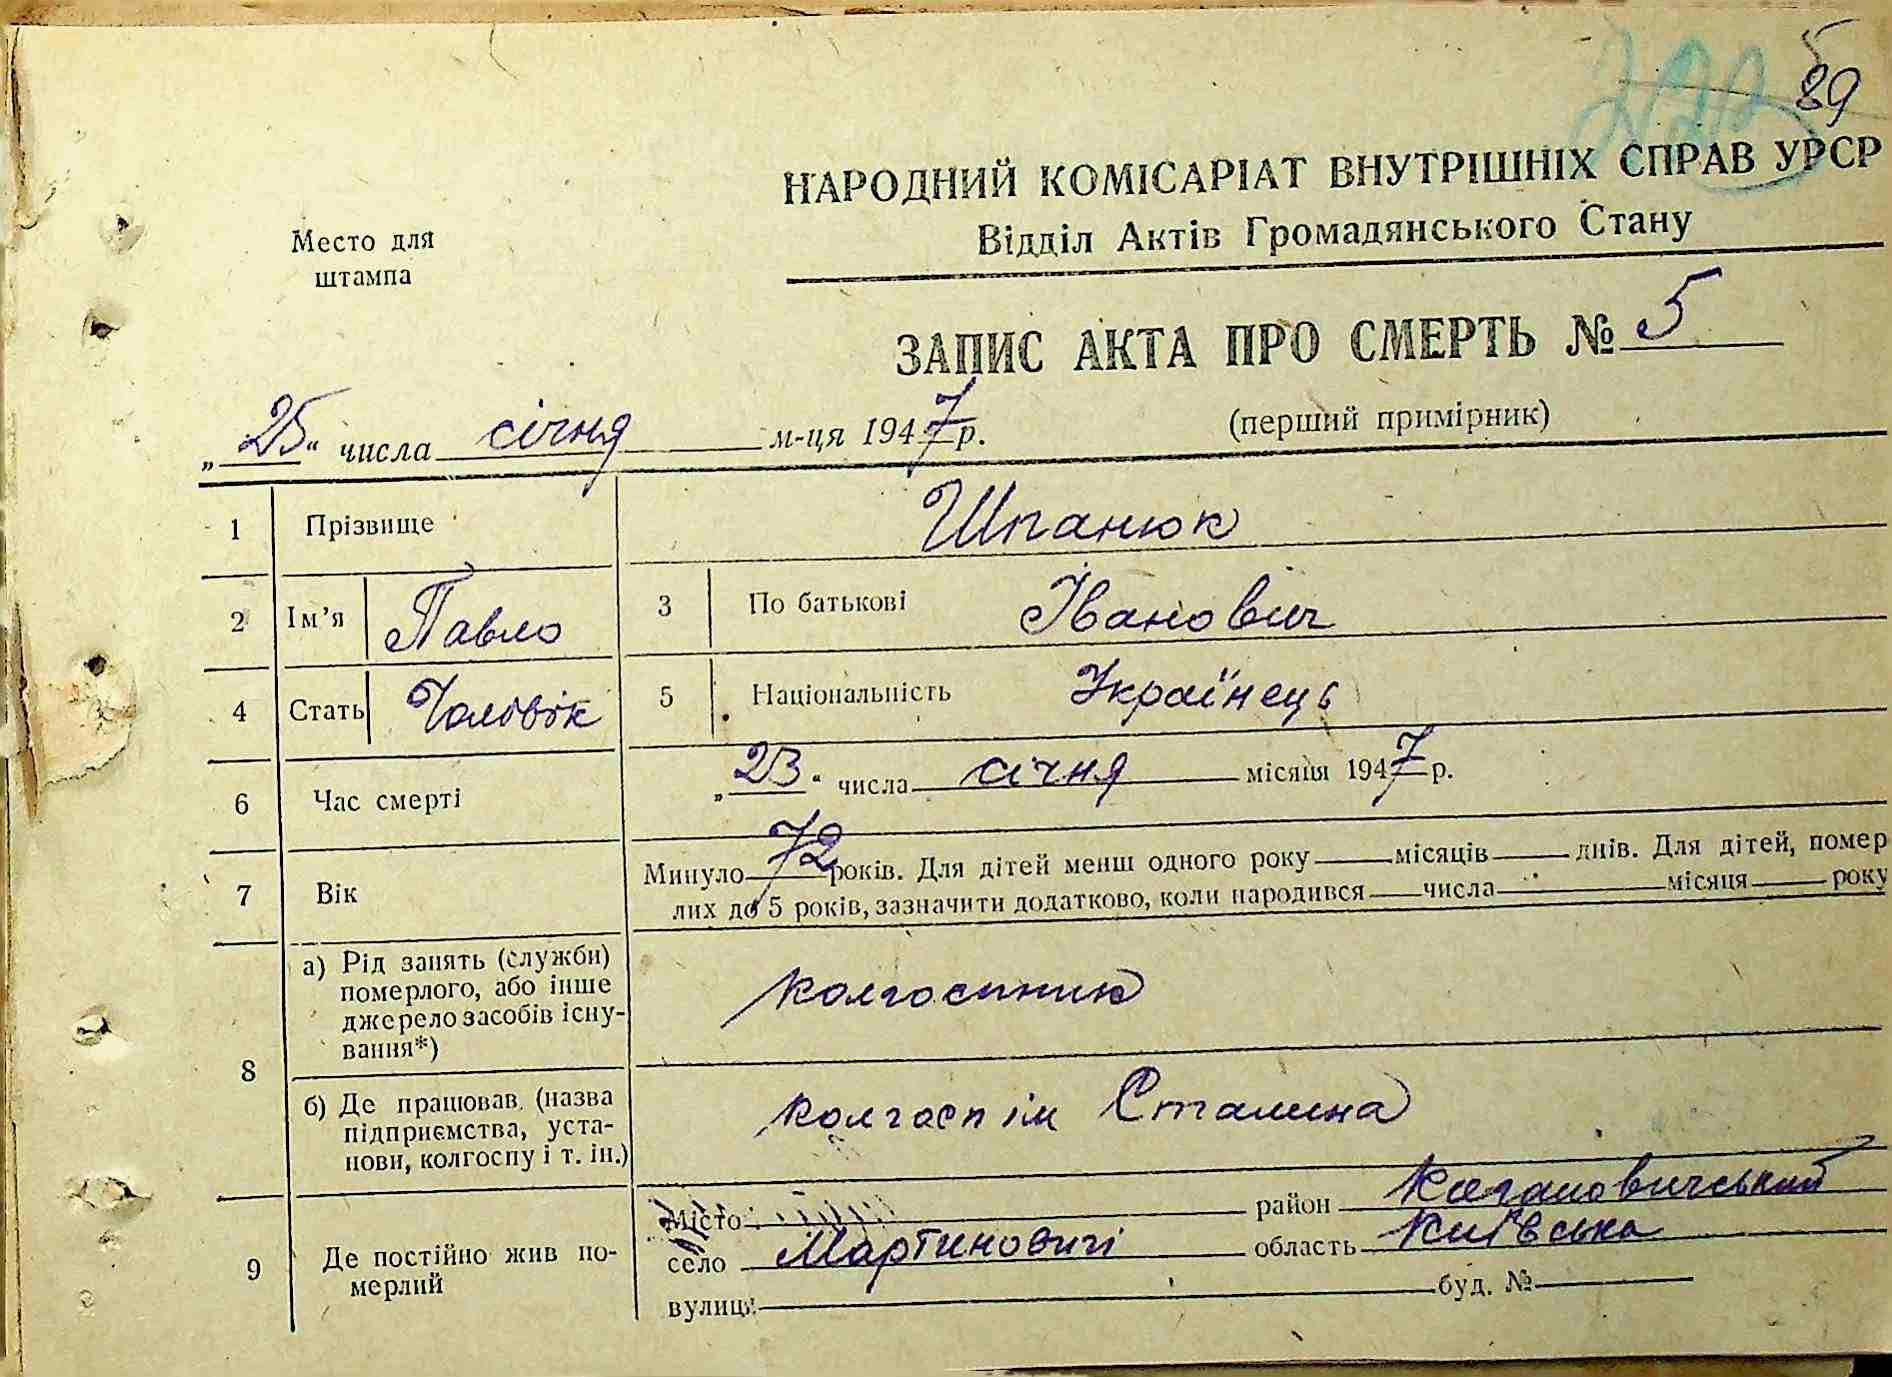 5
89
НАРОДНИЙ КОМІСАРІАТ ВНУТРІШНІХ СПРАВ УРСР
Відділ Актів Громадянського Стану
Место для
штампа
ЗАПИС АКТА ПРО СМЕРТЬ № 5
„25“ числа січня м-ця 1947 р.
(перший примірник)
1 Прізвище Шпанюк
2 Ім’я Павло 3 По батькові Іванович
4 Стать Чоловік 5 Національність Українець
6 Час смерті „23“ числа січня місяця 1947 р.
7 Вік Минуло 72 років. Для дітей менш одного року місяців днів. Для дітей, помер
лих до 5 років, зазначити додатково, коли народився числа місяця року
8 а) Рід занять (служби)
померлого, або інше
джерело засобів існу-
вання*)
колгоспник
б) Де працював (назва
підприємства, уста-
нови, колгоспу і т. ін.)
колгосп ім Сталина
9 Де постійно жив по-
мерлий
Місто район Кагановичський
село Мартиновичі область Київська
вулиця буд. №